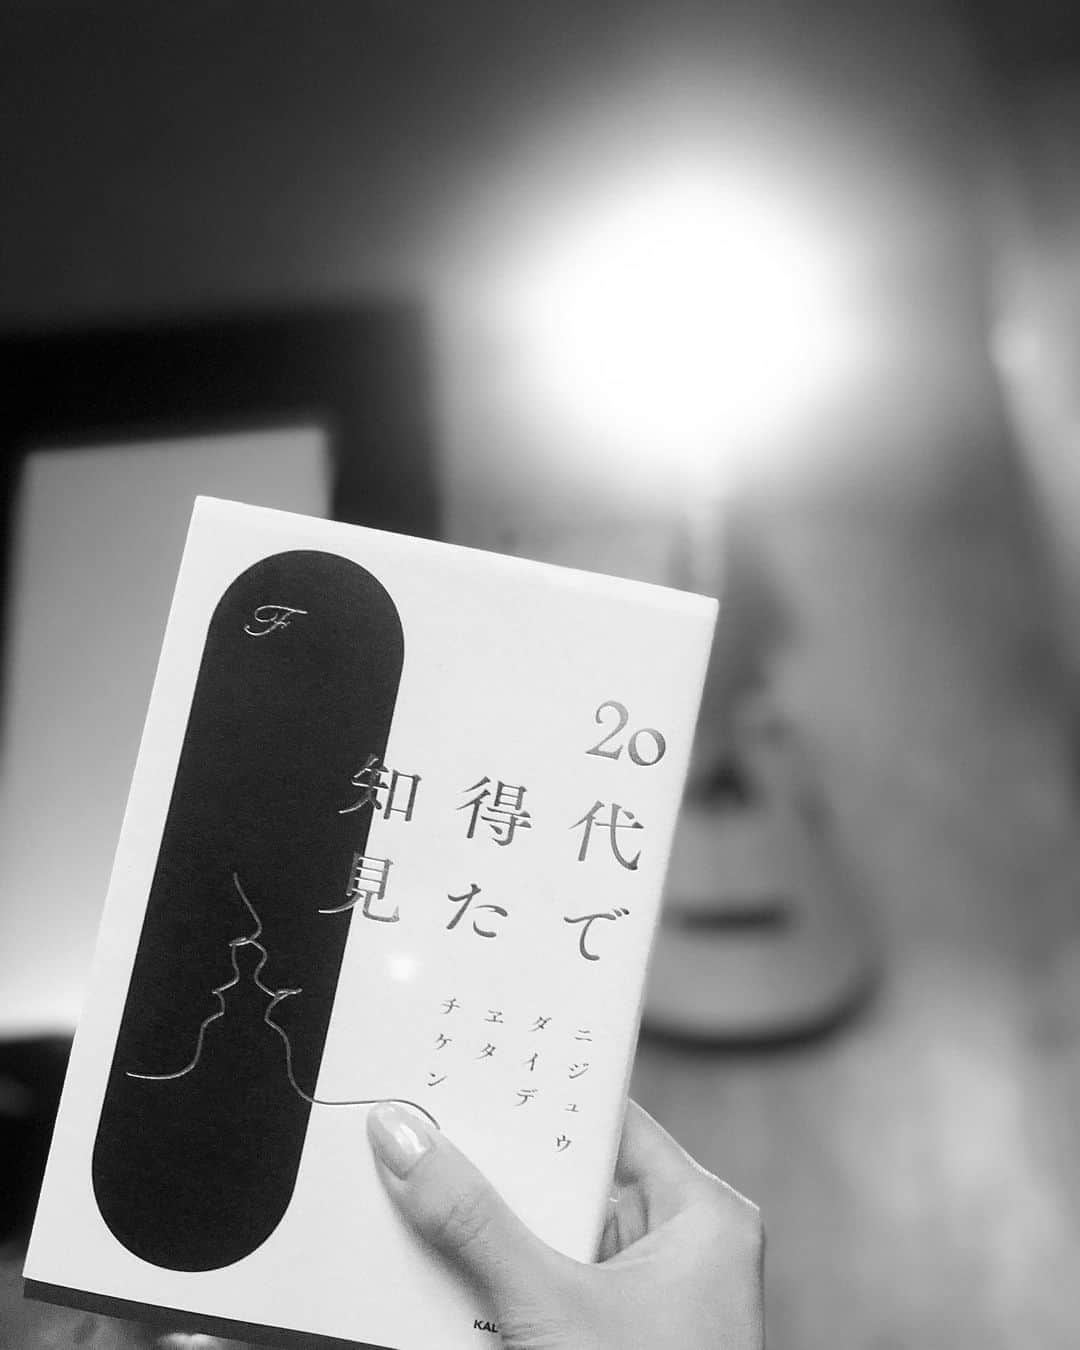 F
20代で
得た
知見
ニジュウ
ダイデ
ヱタ
チケン
KAL